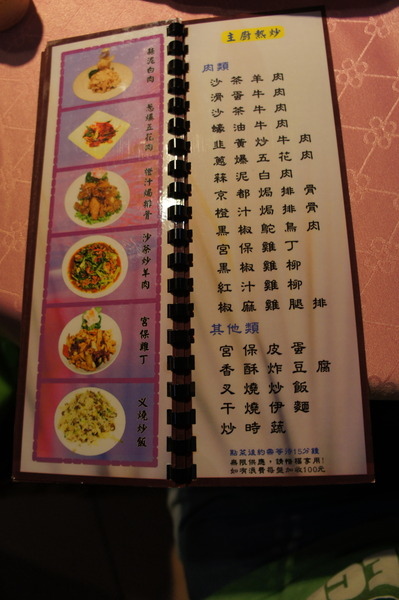 蒜泥白肉
蔥爆五花肉
橙汁焗排骨
沙茶炒羊肉
宮保雞丁
叉燒炒飯
主廚熱炒
肉類
沙茶羊肉
滑蛋牛肉
沙茶牛肉
蠔油牛肉
韭黃炒牛肉
蔥爆五花肉
蒜泥白肉
京都焗排骨
橙汁焗排骨
黑椒鴕鳥肉
宮保雞丁
黑椒雞柳
紅汁雞柳
椒麻雞腿排
其他類
宮保皮蛋
香酥炸豆腐
叉燒炒飯
干燒伊麵
炒時蔬
點菜後約需等 15分鐘
無限供應，請惜福享用!
如有浪費每盤加收100元